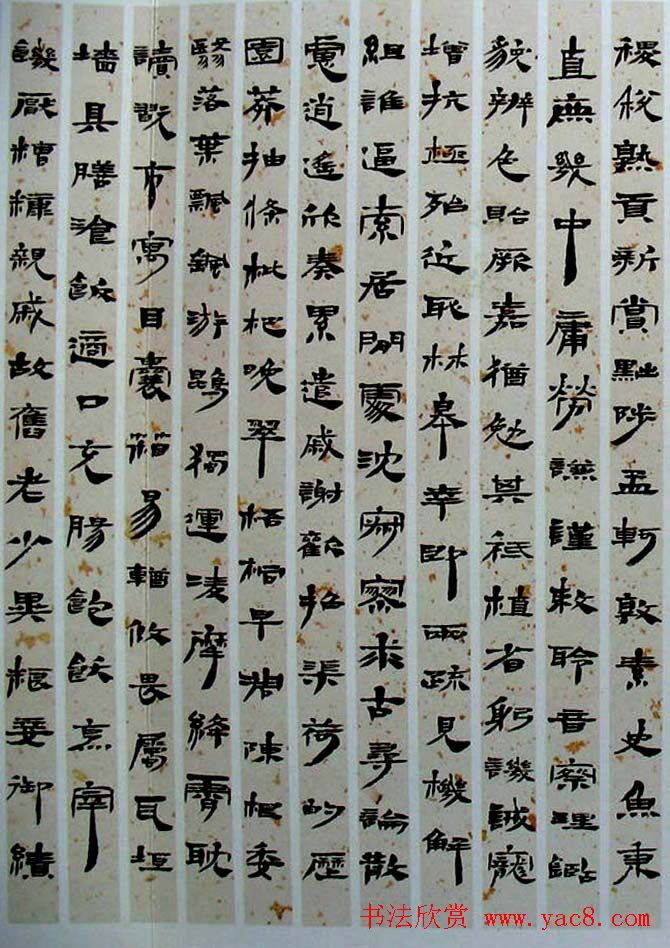 稷稅熟貢新賞黜陟孟軻敦素史魚秉
直庶幾中庸勞謙謹敕聆音察理鑑
貌辨色貽厥嘉猷勉其祗植省躬譏誡寵
增抗極殆近恥林皋幸即兩疏見機解
組誰逼索居閒處沈寂寥求古尋論散
慮逍遙欣奏累遣戚謝歡招渠荷的歷
園莽抽條枇杷晚翠梧桐早凋陳根委
翳落葉飄颻游鵾獨運凌摩絳霄耽
讀翫市寓目囊箱易輶攸畏屬耳垣
墻具膳飡飯適口充腸飽飫烹宰
饑厭糟糠親戚故舊老少異粮妾御績
书法欣赏 www.yac8.com